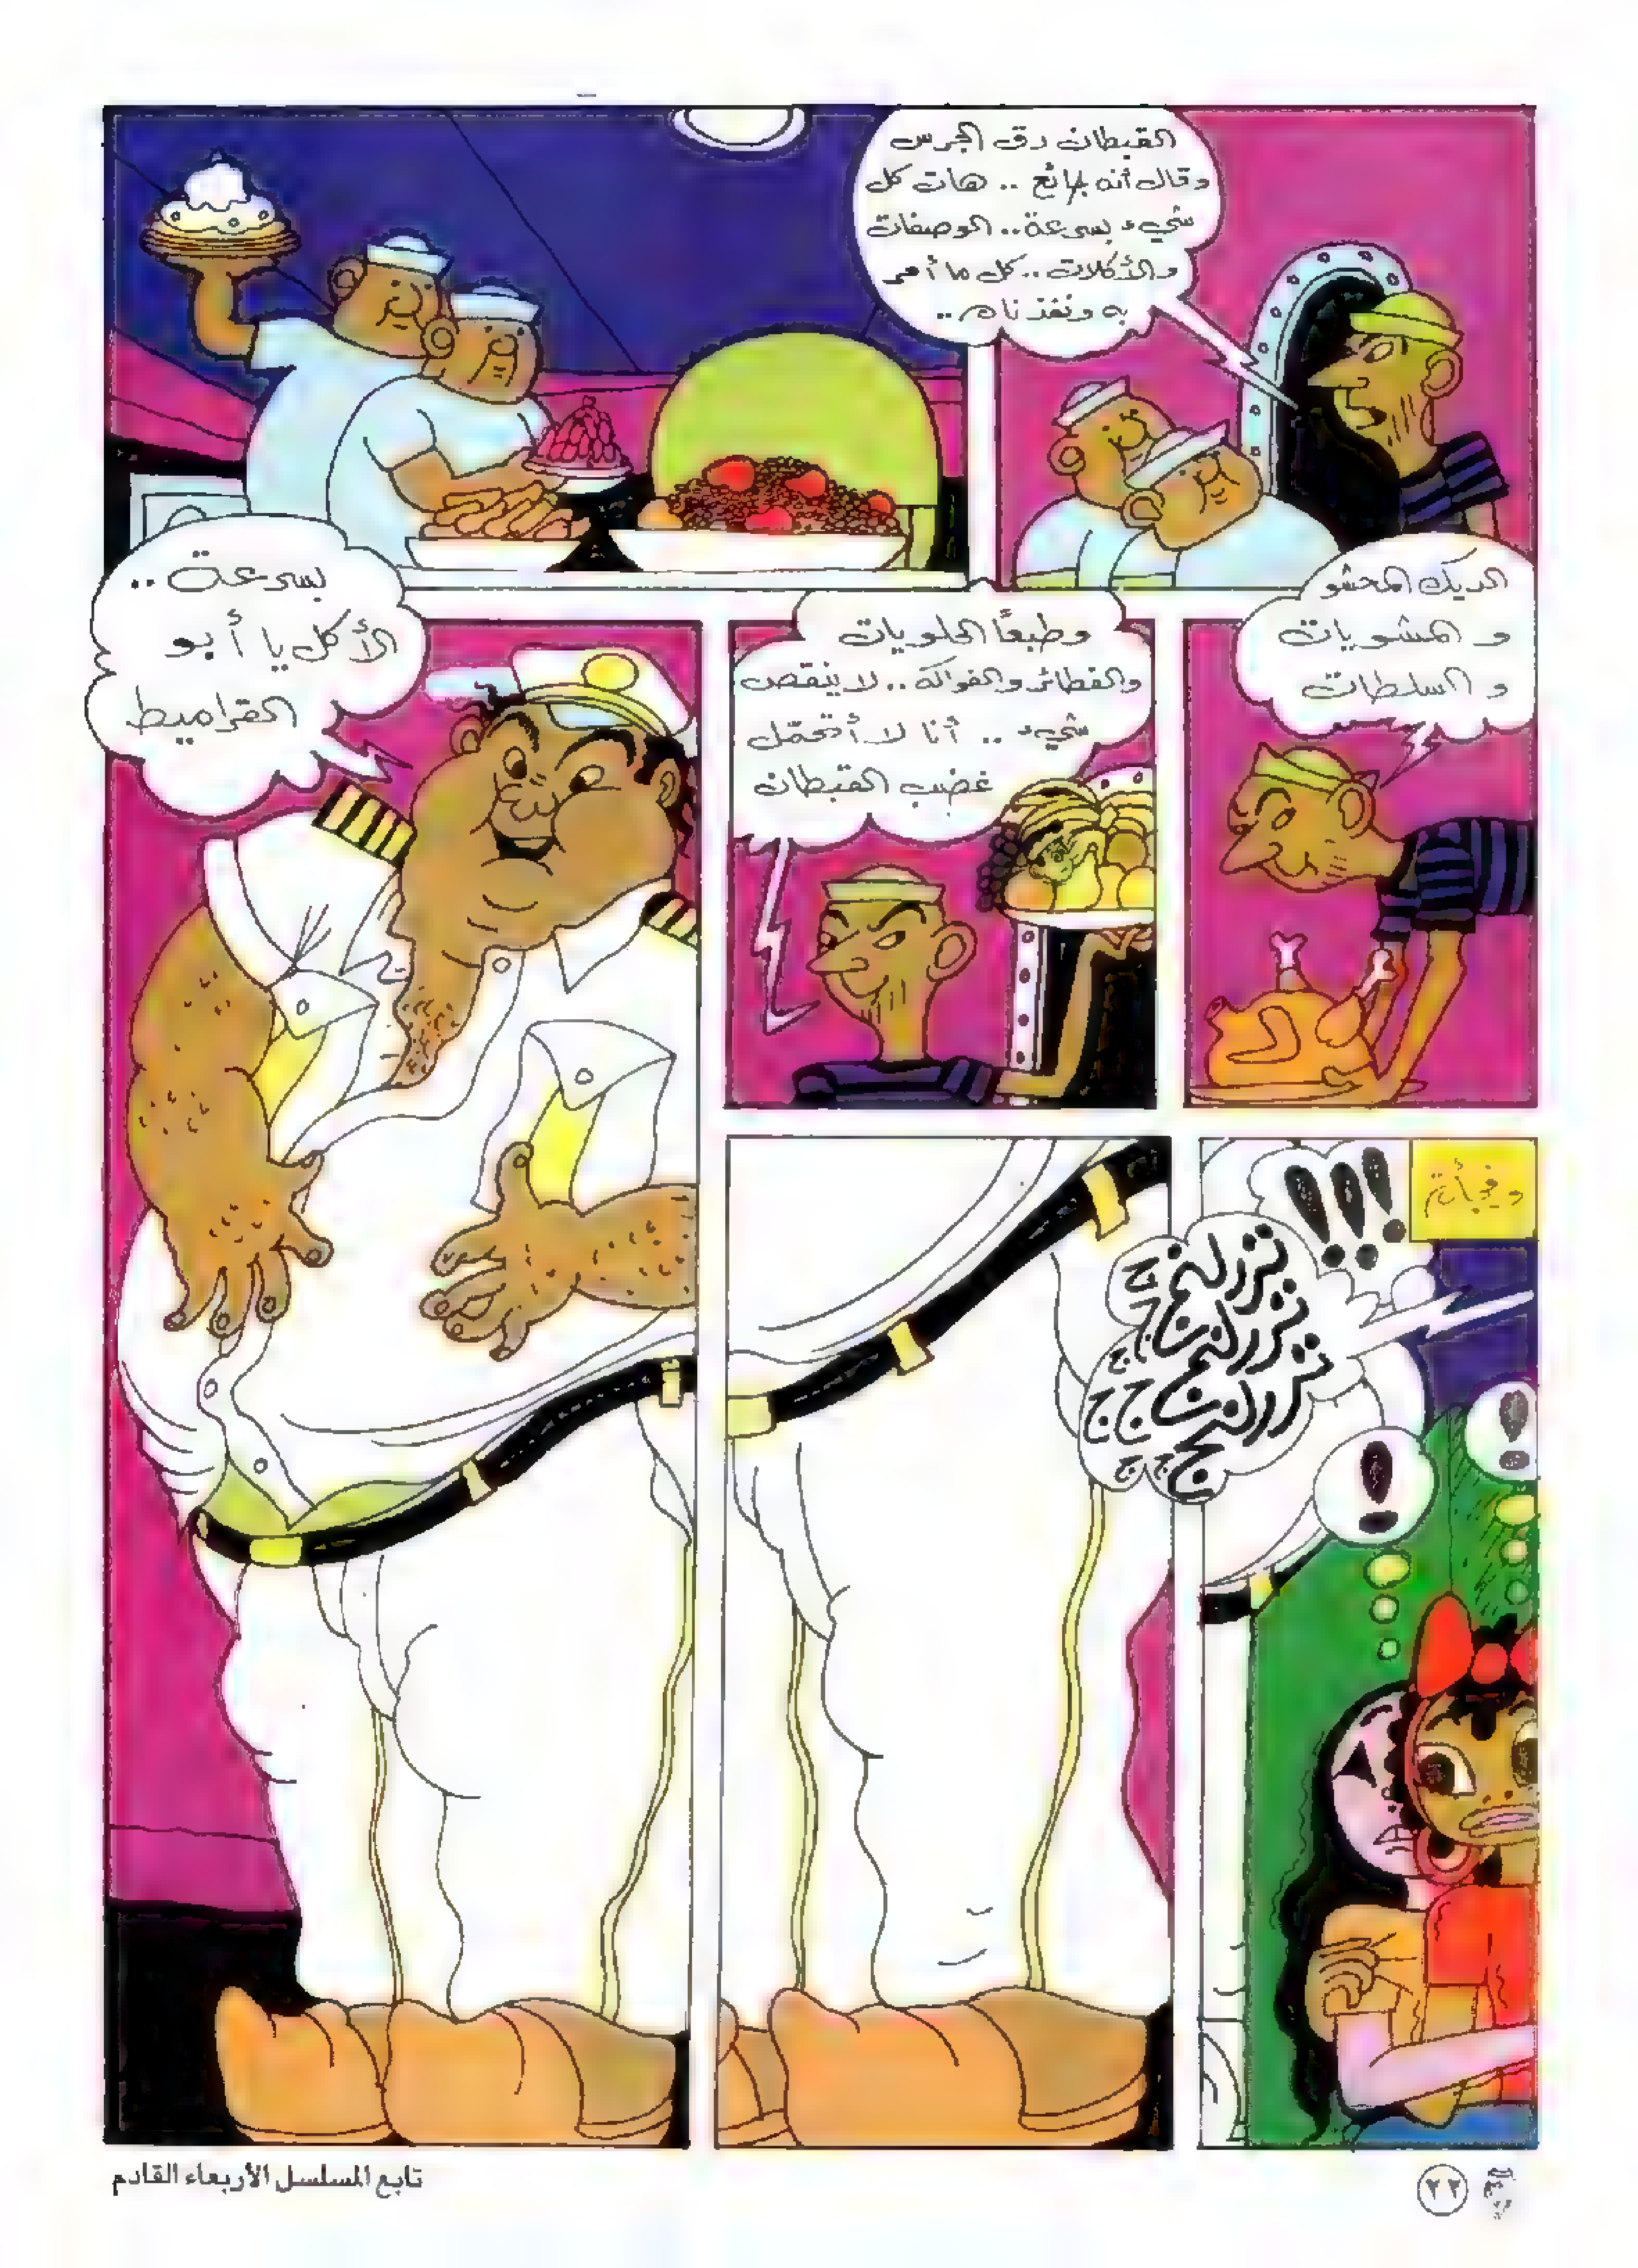 القبطان دق الجرس
وقال أنه جائع .. هات كل
شيء بسرعة .. الوصفات
والأكلات .. كل ما أمر
به ونفذناه ..
الديك المحشو
و المشويات
و السلطات
وطبعًا الحلويات
والفطائر والفواكه .. لا ينقص
شيء .. أنا لا أتحمّل
غضب القبطان
بسرعة ..
الأكل يا أبو
القراميط
وفجأة
!!!
!
!
تابع المسلسل الأربعاء القادم
٢٢